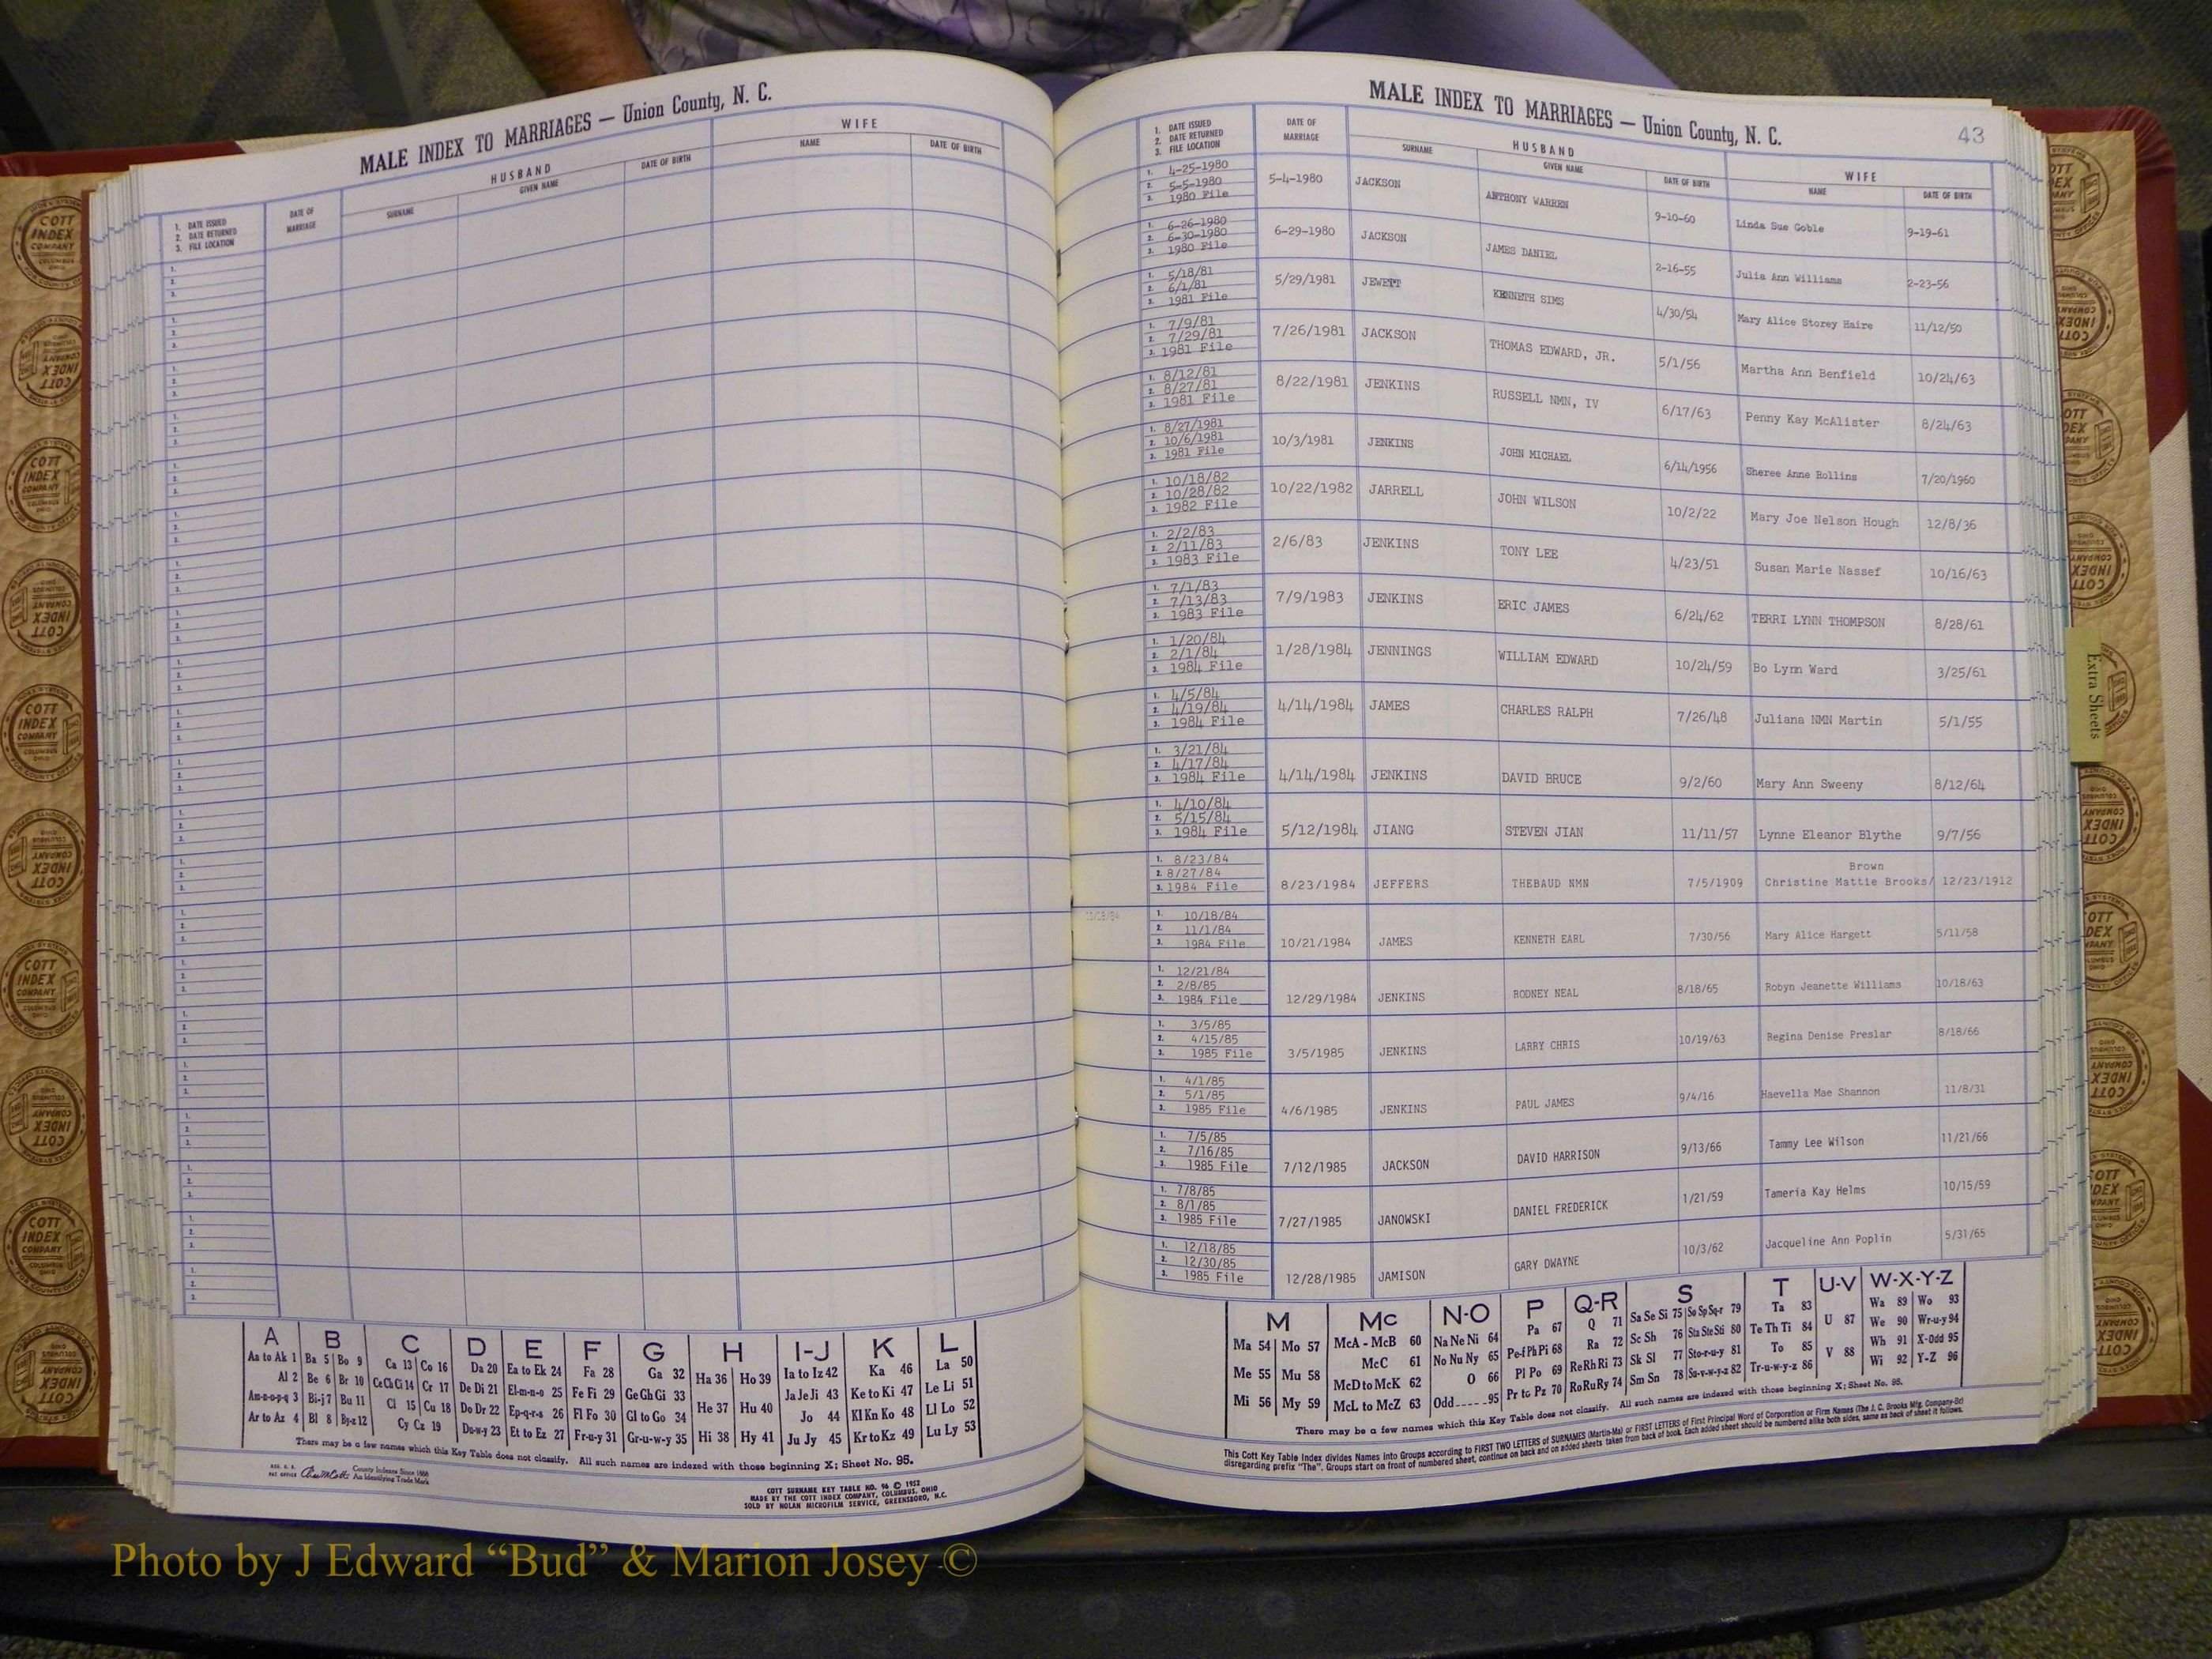 MALE INDEX TO MARRIAGES — Union County, N. C.
HUSBAND
WIFE
1. DATE ISSUED
2. DATE RETURNED
3. FILE LOCATION
DATE OF MARRIAGE
SURNAME
GIVEN NAME
DATE OF BIRTH
NAME
DATE OF BIRTH
A B C D E F G H I-J K L
Aa to Ak 1 Ba 5 Bo 9 Ca 13 Co 16 Da 20 Ea to Ek 24 Fa 28 Ga 32 Ha 36 Ho 39 Ia to Iz 42 Ka 46 La 50
Al 2 Be 6 Br 10 Ce Ch Ci 14 Cr 17 De Di 21 El-m-n-o 25 Fe Fi 29 Ge Gh Gi 33 He 37 Hu 40 Ja Je Ji 43 Ke to Ki 47 Le Li 51
Am-n-o-p-q 3 Bi-j 7 Bu 11 Cl 15 Cu 18 Do Dr 22 Ep-q-r-s 26 Fl Fo 30 Gl to Go 34 Hi 38 Hy 41 Jo 44 Kl Kn Ko 48 Ll Lo 52
Ar to Az 4 Bl 8 By-z 12 Cy Cz 19 Du-w-y 23 Et to Ez 27 Fr-u-y 31 Gr-u-w-y 35 Ju Jy 45 Kr to Kz 49 Lu Ly 53
There may be a few names which this Key Table does not classify. All such names are indexed with those beginning X; Sheet No. 95.
County Indexes Since 1888
An Identifying Trade Mark
COTT SURNAME KEY TABLE NO. 96 © 1952
MADE BY THE COTT INDEX COMPANY, COLUMBUS, OHIO
SOLD BY NOLAN MICROFILM SERVICE, GREENSBORO, N.C.
MALE INDEX TO MARRIAGES — Union County, N. C.
43
1. DATE ISSUED
2. DATE RETURNED
3. FILE LOCATION
DATE OF MARRIAGE
HUSBAND
SURNAME
GIVEN NAME
DATE OF BIRTH
WIFE
NAME
DATE OF BIRTH
1. 4-25-1980
2. 5-5-1980
3. 1980 File
5-4-1980 JACKSON ANTHONY WARREN 9-10-60 Linda Sue Goble 9-19-61
1. 6-26-1980
2. 6-30-1980
3. 1980 File
6-29-1980 JACKSON JAMES DANIEL 2-16-55 Julia Ann Williams 2-23-56
1. 5/18/81
2. 6/1/81
3. 1981 File
5/29/1981 JEWETT KENNETH SIMS 4/30/54 Mary Alice Storey Haire 11/12/50
1. 7/9/81
2. 7/29/81
3. 1981 File
7/26/1981 JACKSON THOMAS EDWARD, JR. 5/1/56 Martha Ann Benfield 10/24/63
1. 8/12/81
2. 8/27/81
3. 1981 File
8/22/1981 JENKINS RUSSELL NMN, IV 6/17/63 Penny Kay McAlister 8/24/63
1. 8/27/1981
2. 10/6/1981
3. 1981 File
10/3/1981 JENKINS JOHN MICHAEL 6/14/1956 Sheree Anne Rollins 7/20/1960
1. 10/18/82
2. 10/28/82
3. 1982 File
10/22/1982 JARRELL JOHN WILSON 10/2/22 Mary Joe Nelson Hough 12/8/36
1. 2/2/83
2. 2/11/83
3. 1983 File
2/6/83 JENKINS TONY LEE 4/23/51 Susan Marie Nassef 10/16/63
1. 7/1/83
2. 7/13/83
3. 1983 File
7/9/1983 JENKINS ERIC JAMES 6/24/62 TERRI LYNN THOMPSON 8/28/61
1. 1/20/84
2. 2/1/84
3. 1984 File
1/28/1984 JENNINGS WILLIAM EDWARD 10/24/59 Bo Lynn Ward 3/25/61
1. 4/5/84
2. 4/19/84
3. 1984 File
4/14/1984 JAMES CHARLES RALPH 7/26/48 Juliana NMN Martin 5/1/55
1. 3/21/84
2. 4/17/84
3. 1984 File
4/14/1984 JENKINS DAVID BRUCE 9/2/60 Mary Ann Sweeny 8/12/64
1. 4/10/84
2. 5/15/84
3. 1984 File
5/12/1984 JIANG STEVEN JIAN 11/11/57 Lynne Eleanor Blythe 9/7/56
1. 8/23/84
2. 8/27/84
3. 1984 File
Brown
8/23/1984 JEFFERS THEBAUD NMN 7/5/1909 Christine Mattie Brooks/ 12/23/1912
10/18/84
1. 10/18/84
2. 11/1/84
3. 1984 File
10/21/1984 JAMES KENNETH EARL 7/30/56 Mary Alice Hargett 5/11/58
1. 12/21/84
2. 2/8/85
3. 1984 File
12/29/1984 JENKINS RODNEY NEAL 8/18/65 Robyn Jeanette Williams 10/18/63
1. 3/5/85
2. 4/15/85
3. 1985 File
3/5/1985 JENKINS LARRY CHRIS 10/19/63 Regina Denise Preslar 8/18/66
1. 4/1/85
2. 5/1/85
3. 1985 File
4/6/1985 JENKINS PAUL JAMES 9/4/16 Haevella Mae Shannon 11/8/31
1. 7/5/85
2. 7/16/85
3. 1985 File
7/12/1985 JACKSON DAVID HARRISON 9/13/66 Tammy Lee Wilson 11/21/66
1. 7/8/85
2. 8/1/85
3. 1985 File
7/27/1985 JANOWSKI DANIEL FREDERICK 1/21/59 Tameria Kay Helms 10/15/59
1. 12/18/85
2. 12/30/85
3. 1985 File
12/28/1985 JAMISON GARY DWAYNE 10/3/62 Jacqueline Ann Poplin 5/31/65
M Mc N-O P Q-R S T U-V W-X-Y-Z
Ma 54 Mo 57 McA - McB 60 Na Ne Ni 64 Pa 67 Q 71 Sa Se Si 75 So Sp Sq-r 79 Ta 83 U 87 Wa 89 Wo 93
Me 55 Mu 58 McC 61 No Nu Ny 65 Pe-f Ph Pi 68 Ra 72 Sc Sh 76 Sta Ste Sti 80 Te Th Ti 84 V 88 We 90 Wr-u-y 94
Mi 56 My 59 McD to McK 62 O 66 Pl Po 69 Re Rh Ri 73 Sk Sl 77 Sto-r-u-y 81 To 85 Wh 91 X-Odd 95
McL to McZ 63 Odd-----95 Pr to Pz 70 Ro Ru Ry 74 Sm Sn 78 Su-v-w-y-z 82 Tr-u-w-y-z 86 Wi 92 Y-Z 96
There may be a few names which this Key Table does not classify. All such names are indexed with those beginning X; Sheet No. 95.
This Cott Key Table Index divides Names into Groups according to FIRST TWO LETTERS of SURNAMES (Martin-Ma) or FIRST LETTERS of First Principal Word of Corporation or Firm Names (The J. C. Brooks Mfg. Company-Br)
disregarding prefix "The". Groups start on front of numbered sheet, continue on back and on added sheets taken from back of book. Each added sheet should be numbered alike both sides, same as back of sheet it follows.
Extra Sheets
COTT INDEX COMPANY COLUMBUS OHIO
Photo by J Edward “Bud” & Marion Josey ©